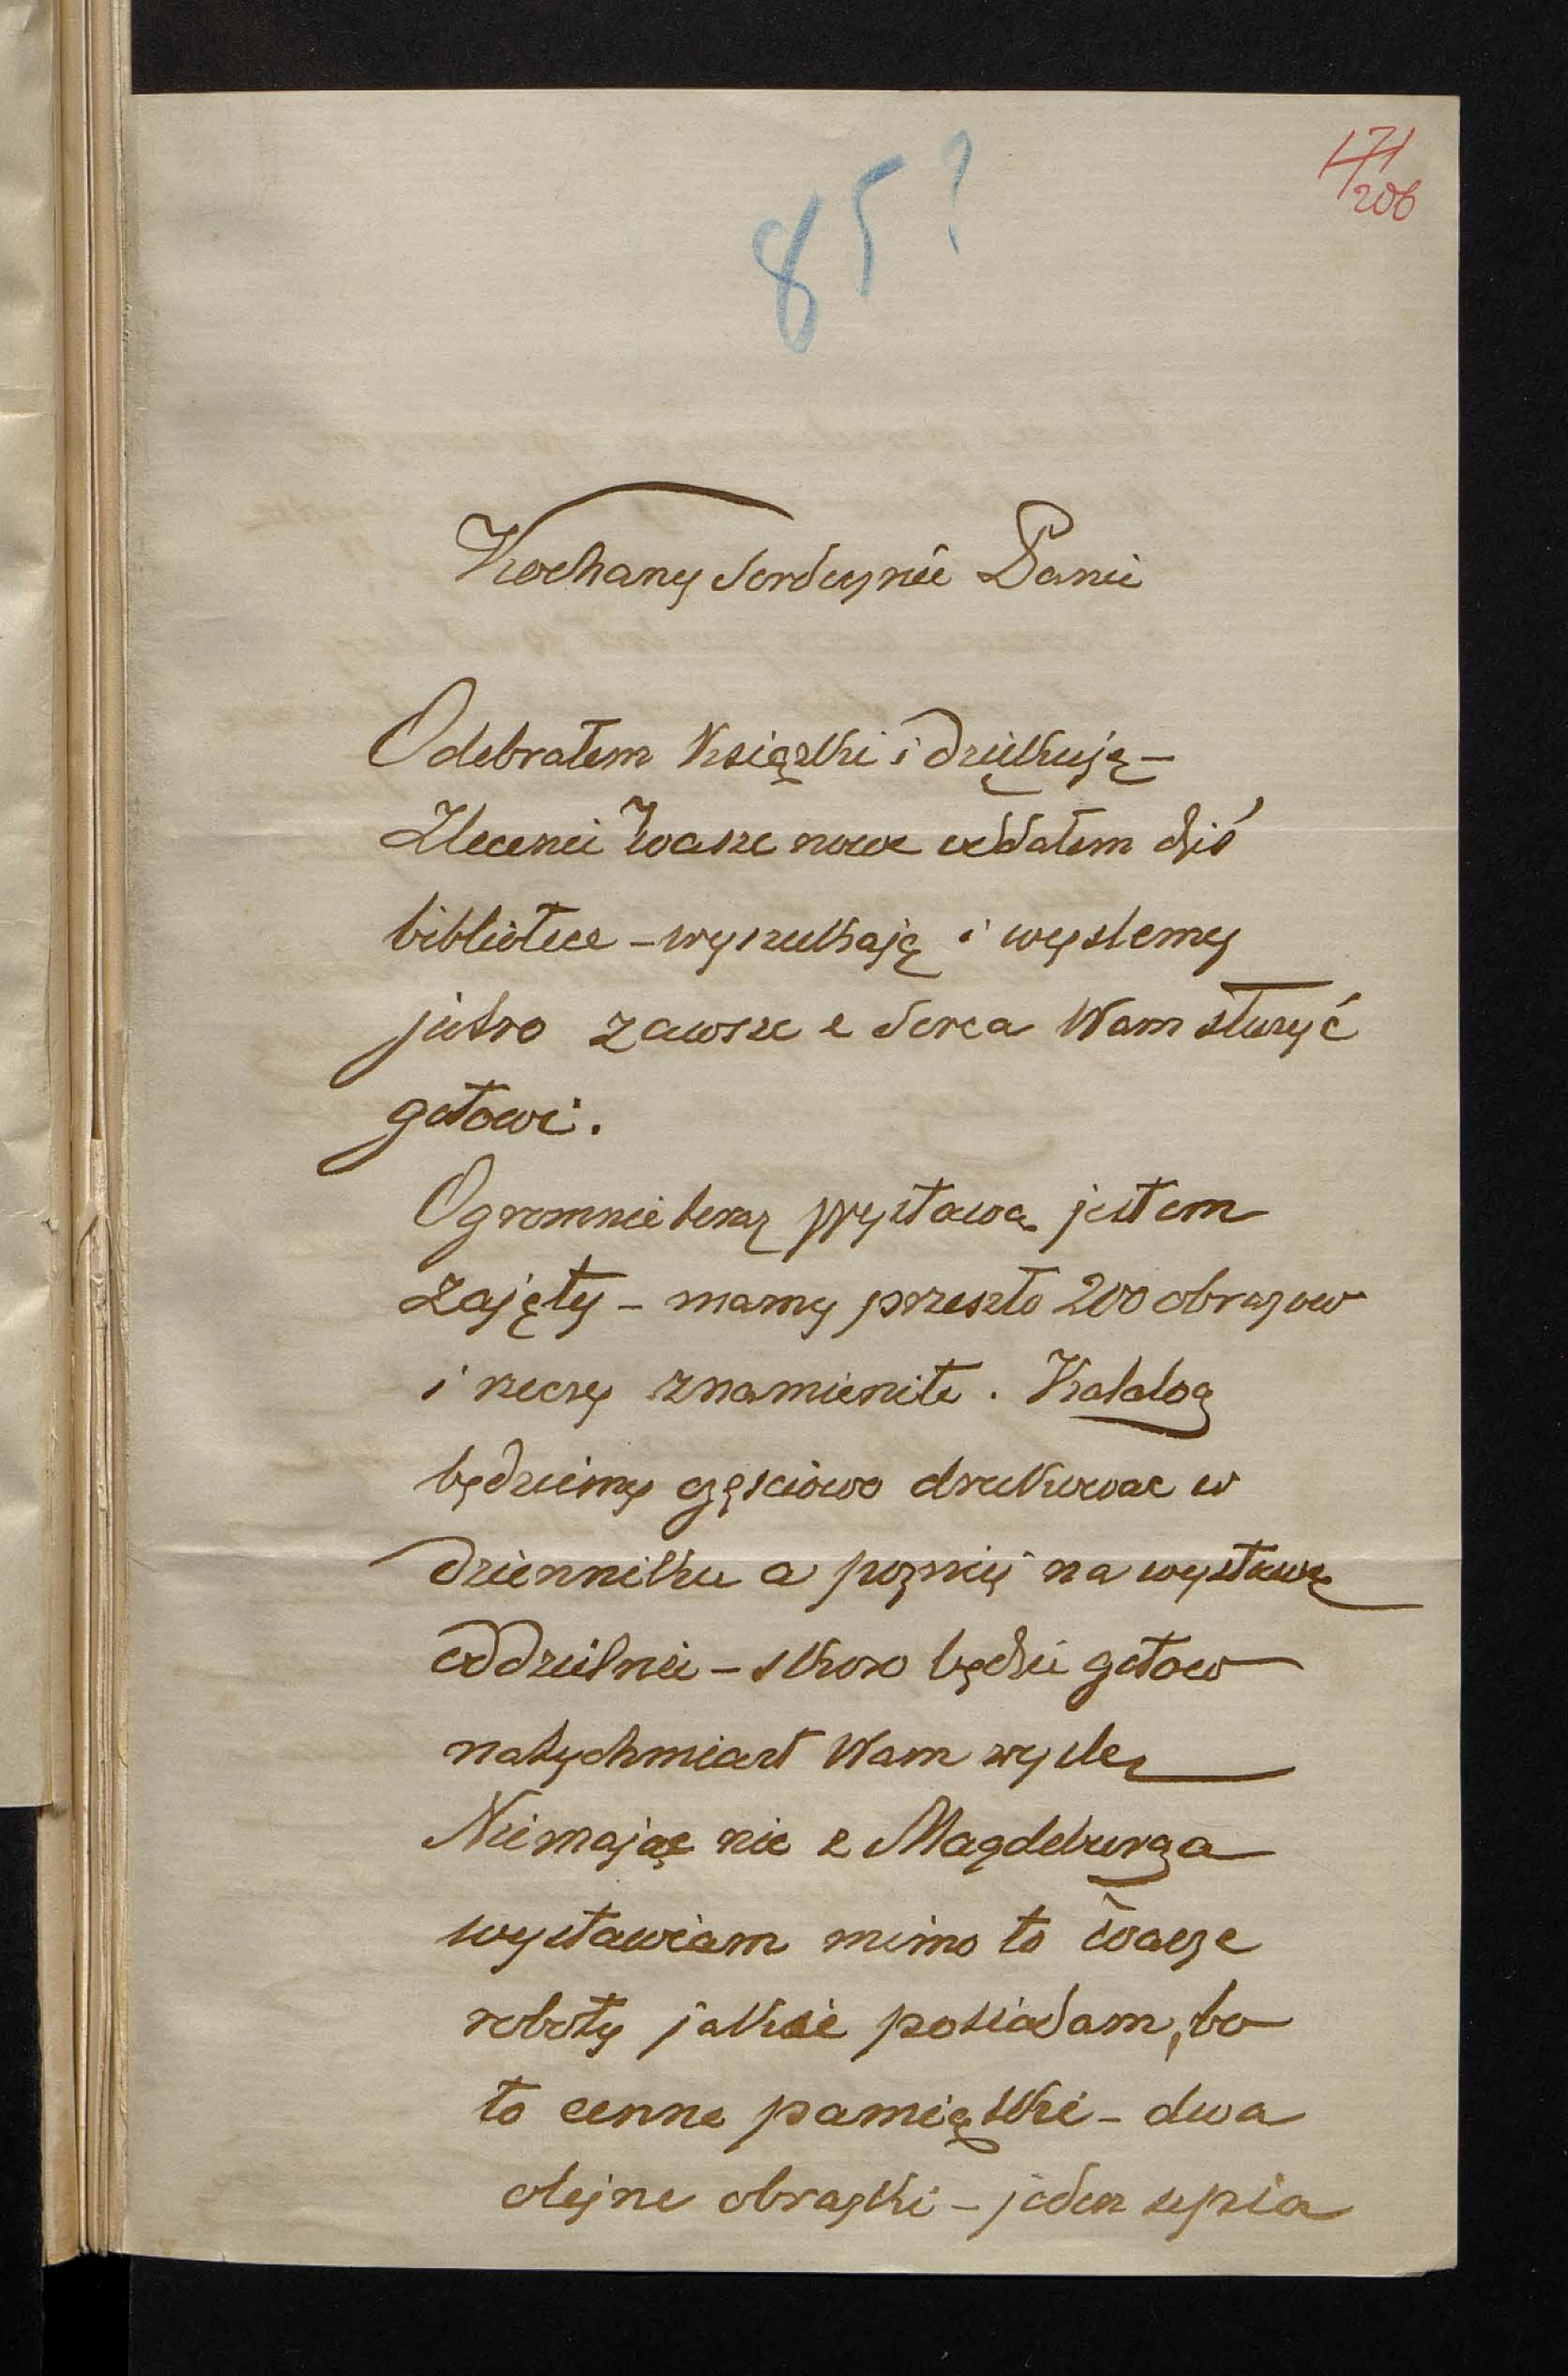 85?
171
206
Kochany serdecznie Panie
Odebrałem Książki i dziękuję –
Zlecenie Wasze nowe oddałem dziś
bibliotece – wyszukają i wyslemy
jutro zawsze z serca Wam służyć
gotowi.
Ogromnie teraz wystawą jestem
zajęty – mamy przeszło 200 obrazow
i rzeczy znamienite. Katalog
będziemy częsciowo drukowac w
dzienniku a pozniej na wystawę
oddzielnie – skoro będzie gotow
natychmiast Wam wyslę
Niemając nic z Magdeburga
wystawiam mimo to wasze
roboty jakie posiadam, bo
to cenne pamiątki – dwa
olejne obrazki – jeden sepia